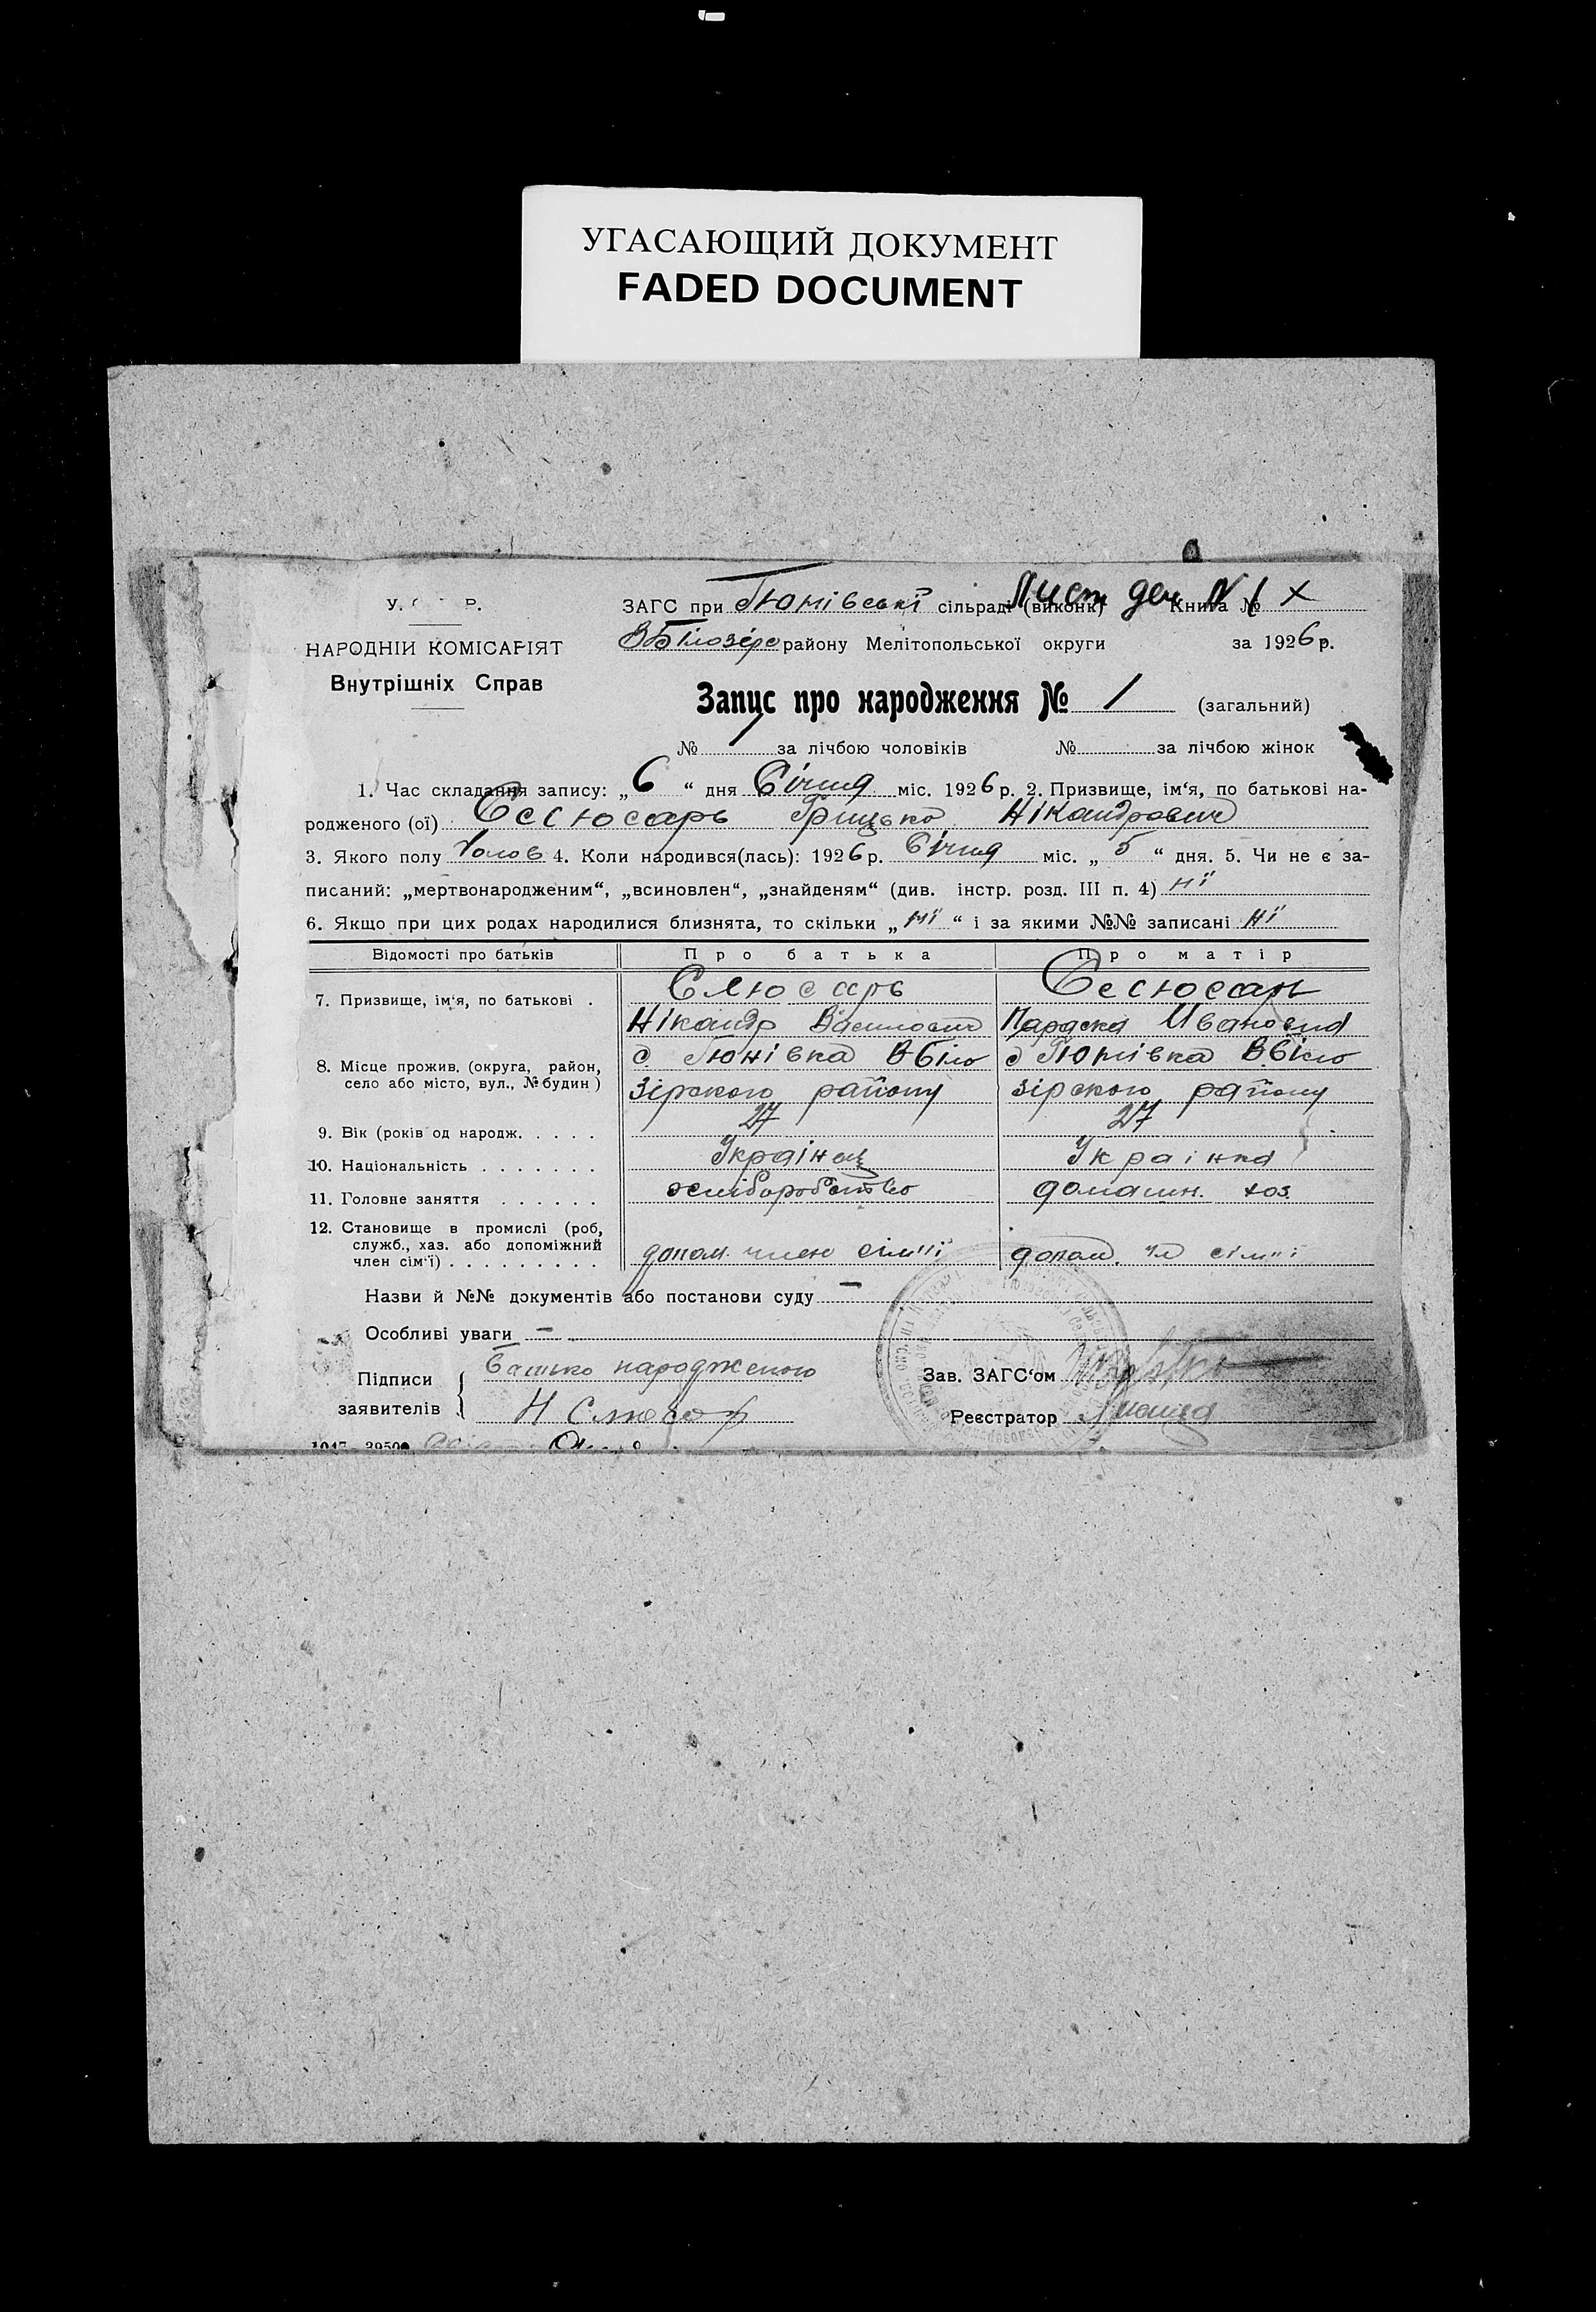 УГАСАЮЩИЙ ДОКУМЕНТ
FADED DOCUMENT
У. С. Р.
НАРОДНІИ КОМІСАРІЯТ
Внутрішніх Справ
ЗАГС при Тюнівскі сільраді (виконк) Книга №
Лист ден N 1 X
ВБілозірс району Мелітопольської округи за 1926 р.
Запис про народження № 1 (загальний)
№ 1 за лічбою чоловіків № за лічбою жінок
1. Час складання запису: „6“ дня Січня міс. 1926 р. 2. Призвище, ім‘я, по батькові на-
родженого (ої) Слюсарь Грицько Нікандрович
3. Якого полу Чолов 4. Коли народився(лась): 1926 р. Січня міс. „5“ дня. 5. Чи не є за-
писаний: „мертвонародженим“, „всиновлен“, „знайденям“ (див. інстр. розд. III п. 4) ні
6. Якщо при цих родах народилися близнята, то скільки „ні“ і за якими №№ записані ні
Відомості про батьків Про батька Про матір
7. Призвище, ім‘я, по батькові . Слюсарь Слюсарь
Нікандр Василович Параска Ивановна
8. Місце прожив. (округа, район, село або місто, вул., № будин) с Тюнівка Вбіло с Тюнівка Вбіло
зірского району зірского району
9. Вік (років од народж. . . . . 27 27
10. Національність . . . . . . . Українец Українка
11. Головне заняття . . . . . . хліборобство домашн. хоз.
12. Становище в промислі (роб, служб., хаз. або допоміжний член сім‘ї) . . . . . . . . . допом. член сімʼї допом. чл сімʼї
Назви й №№ документів або постанови суду —
Особливі уваги —
Підписи заявителів { Батько народженого
Н Слюсар
Зав. ЗАГС‘ом
Реєстратор